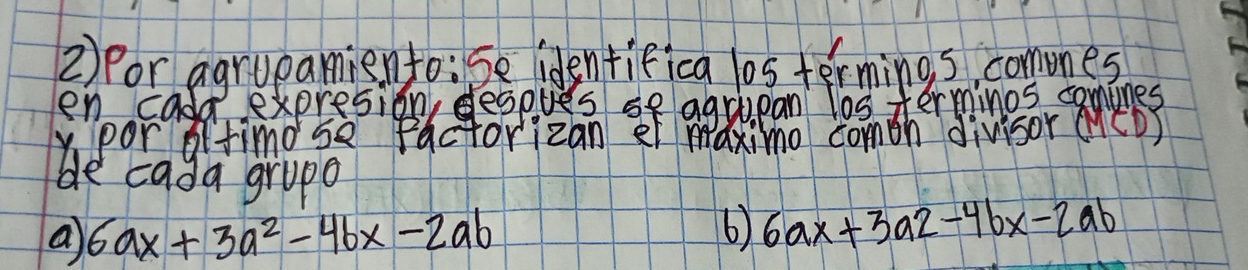 2) Por agrupamiento: Se identifica los términos comunes
en cada expresión, después se agrupan los términos comunes
y por último se factorizan el máximo común divisor (MCD)
de cada grupo
a) 6ax + 3a² - 4bx - 2ab b) 6ax + 3a2 - 4bx - 2ab